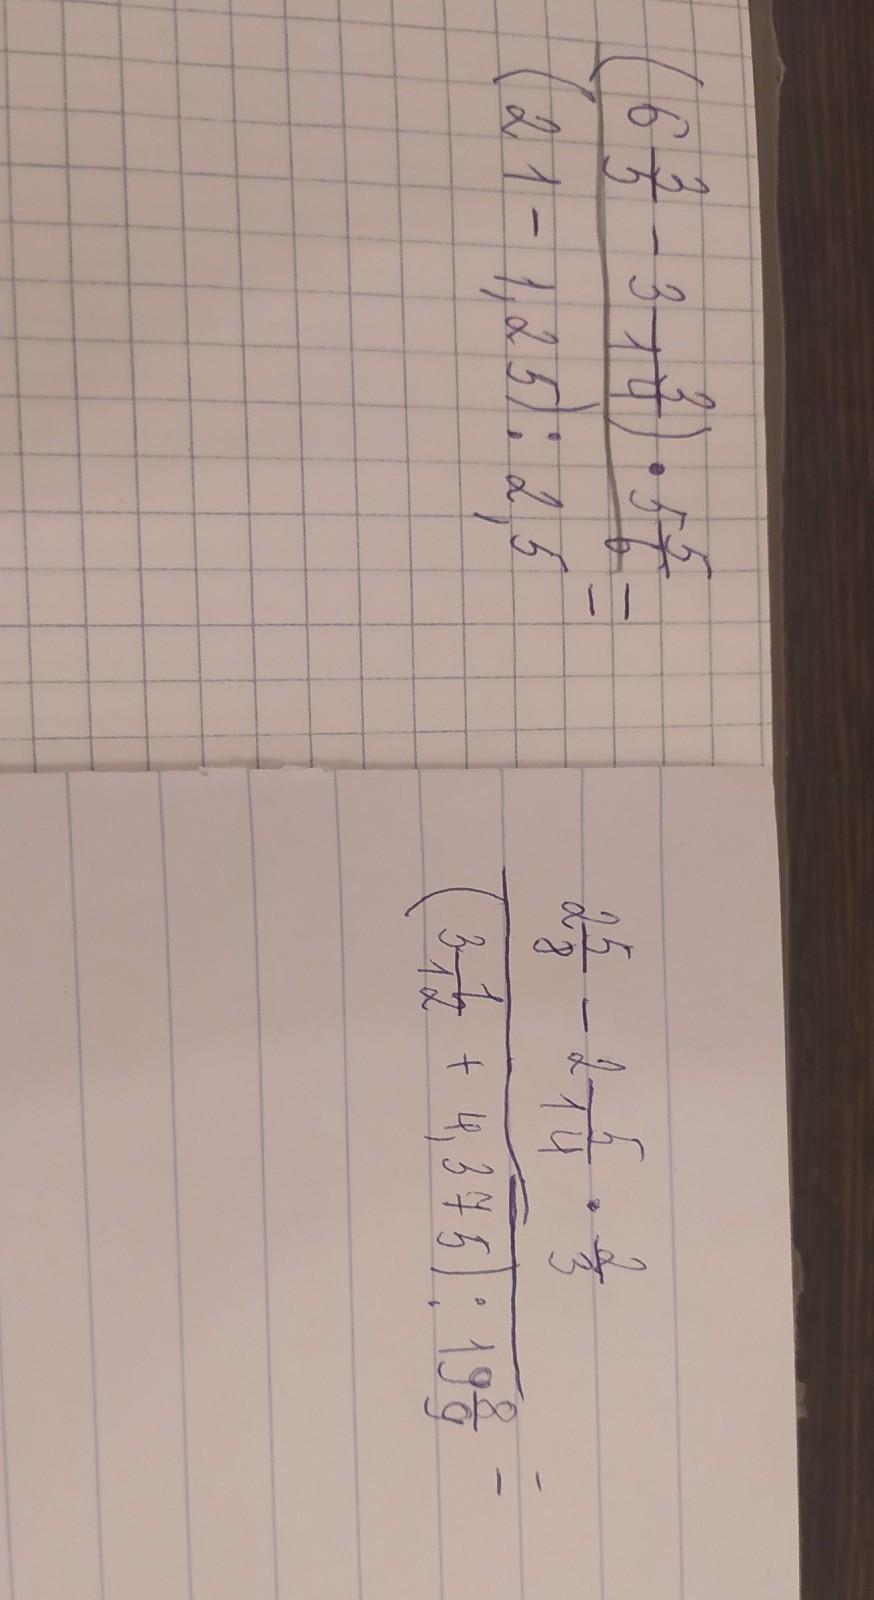 (6 3/5 - 3 3/14) · 5 5/6
(21 - 1,25) : 2,5
=
2 5/8 - 2 5/14 · 2/3
(3 1/12 + 4,375) : 19 8/9
=